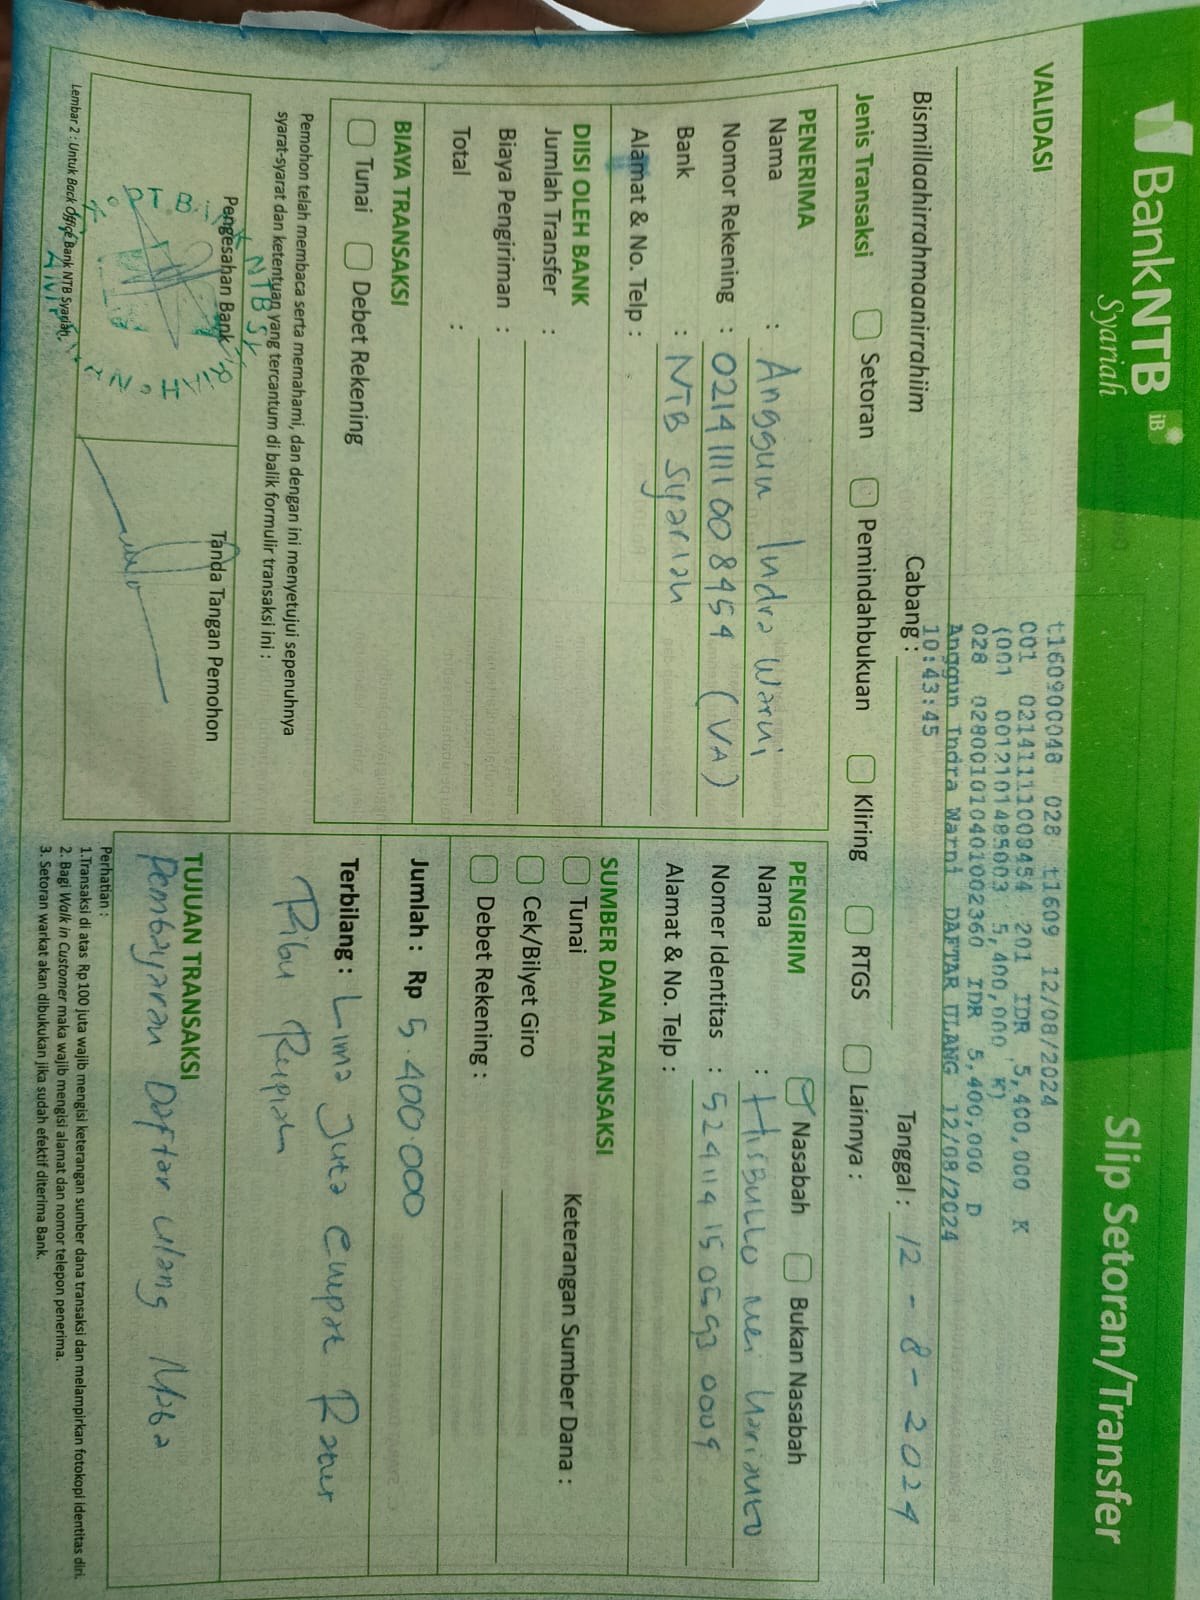 BankNTB iB
Syariah
Slip Setoran/Transfer
VALIDASI
t160900048 028 t1609 12/08/2024
001 02141111008454 201 IDR 5,400,000 K
(001 0012101485003 5,400,000 K)
028 028001010401002360 IDR 5,400,000 D
Anggun Indra Warni DAFTAR ULANG 12/08/2024
10:43:45
Bismillaahirrahmaanirrahiim
Cabang :
Tanggal : 12 - 8 - 2024
Jenis Transaksi Setoran Pemindahbukuan Kliring RTGS Lainnya :
PENERIMA
Nama : Anggun Indra Warni
Nomor Rekening : 02141111008454 (VA)
Bank : NTB Syariah
Alamat & No. Telp :
DIISI OLEH BANK
Jumlah Transfer :
Biaya Pengiriman :
Total :
BIAYA TRANSAKSI
Tunai Debet Rekening
Pemohon telah membaca serta memahami, dan dengan ini menyetujui sepenuhnya
syarat-syarat dan ketentuan yang tercantum di balik formulir transaksi ini :
Pengesahan Bank
PT. Bank NTB SY
Tanda Tangan Pemohon
Lembar 2 : Untuk Back Office Bank NTB Syariah
PENGIRIM Nasabah Bukan Nasabah
Nama : Hisbullo Mei Harianto
Nomer Identitas : 5241141505930009
Alamat & No. Telp :
SUMBER DANA TRANSAKSI
Tunai Keterangan Sumber Dana :
Cek/Bilyet Giro
Debet Rekening :
Jumlah : Rp 5.400.000
Terbilang : Lima Juta Empat Ratus
Ribu Rupiah
TUJUAN TRANSAKSI
Pembayaran Daftar ulang Maba
Perhatian :
1.Transaksi di atas Rp100 juta wajib mengisi keterangan sumber dana transaksi dan melampirkan fotokopi identitas diri.
2. Bagi Walk in Customer maka wajib mengisi alamat dan nomor telepon penerima.
3. Setoran warkat akan dibukukan jika sudah efektif diterima Bank.